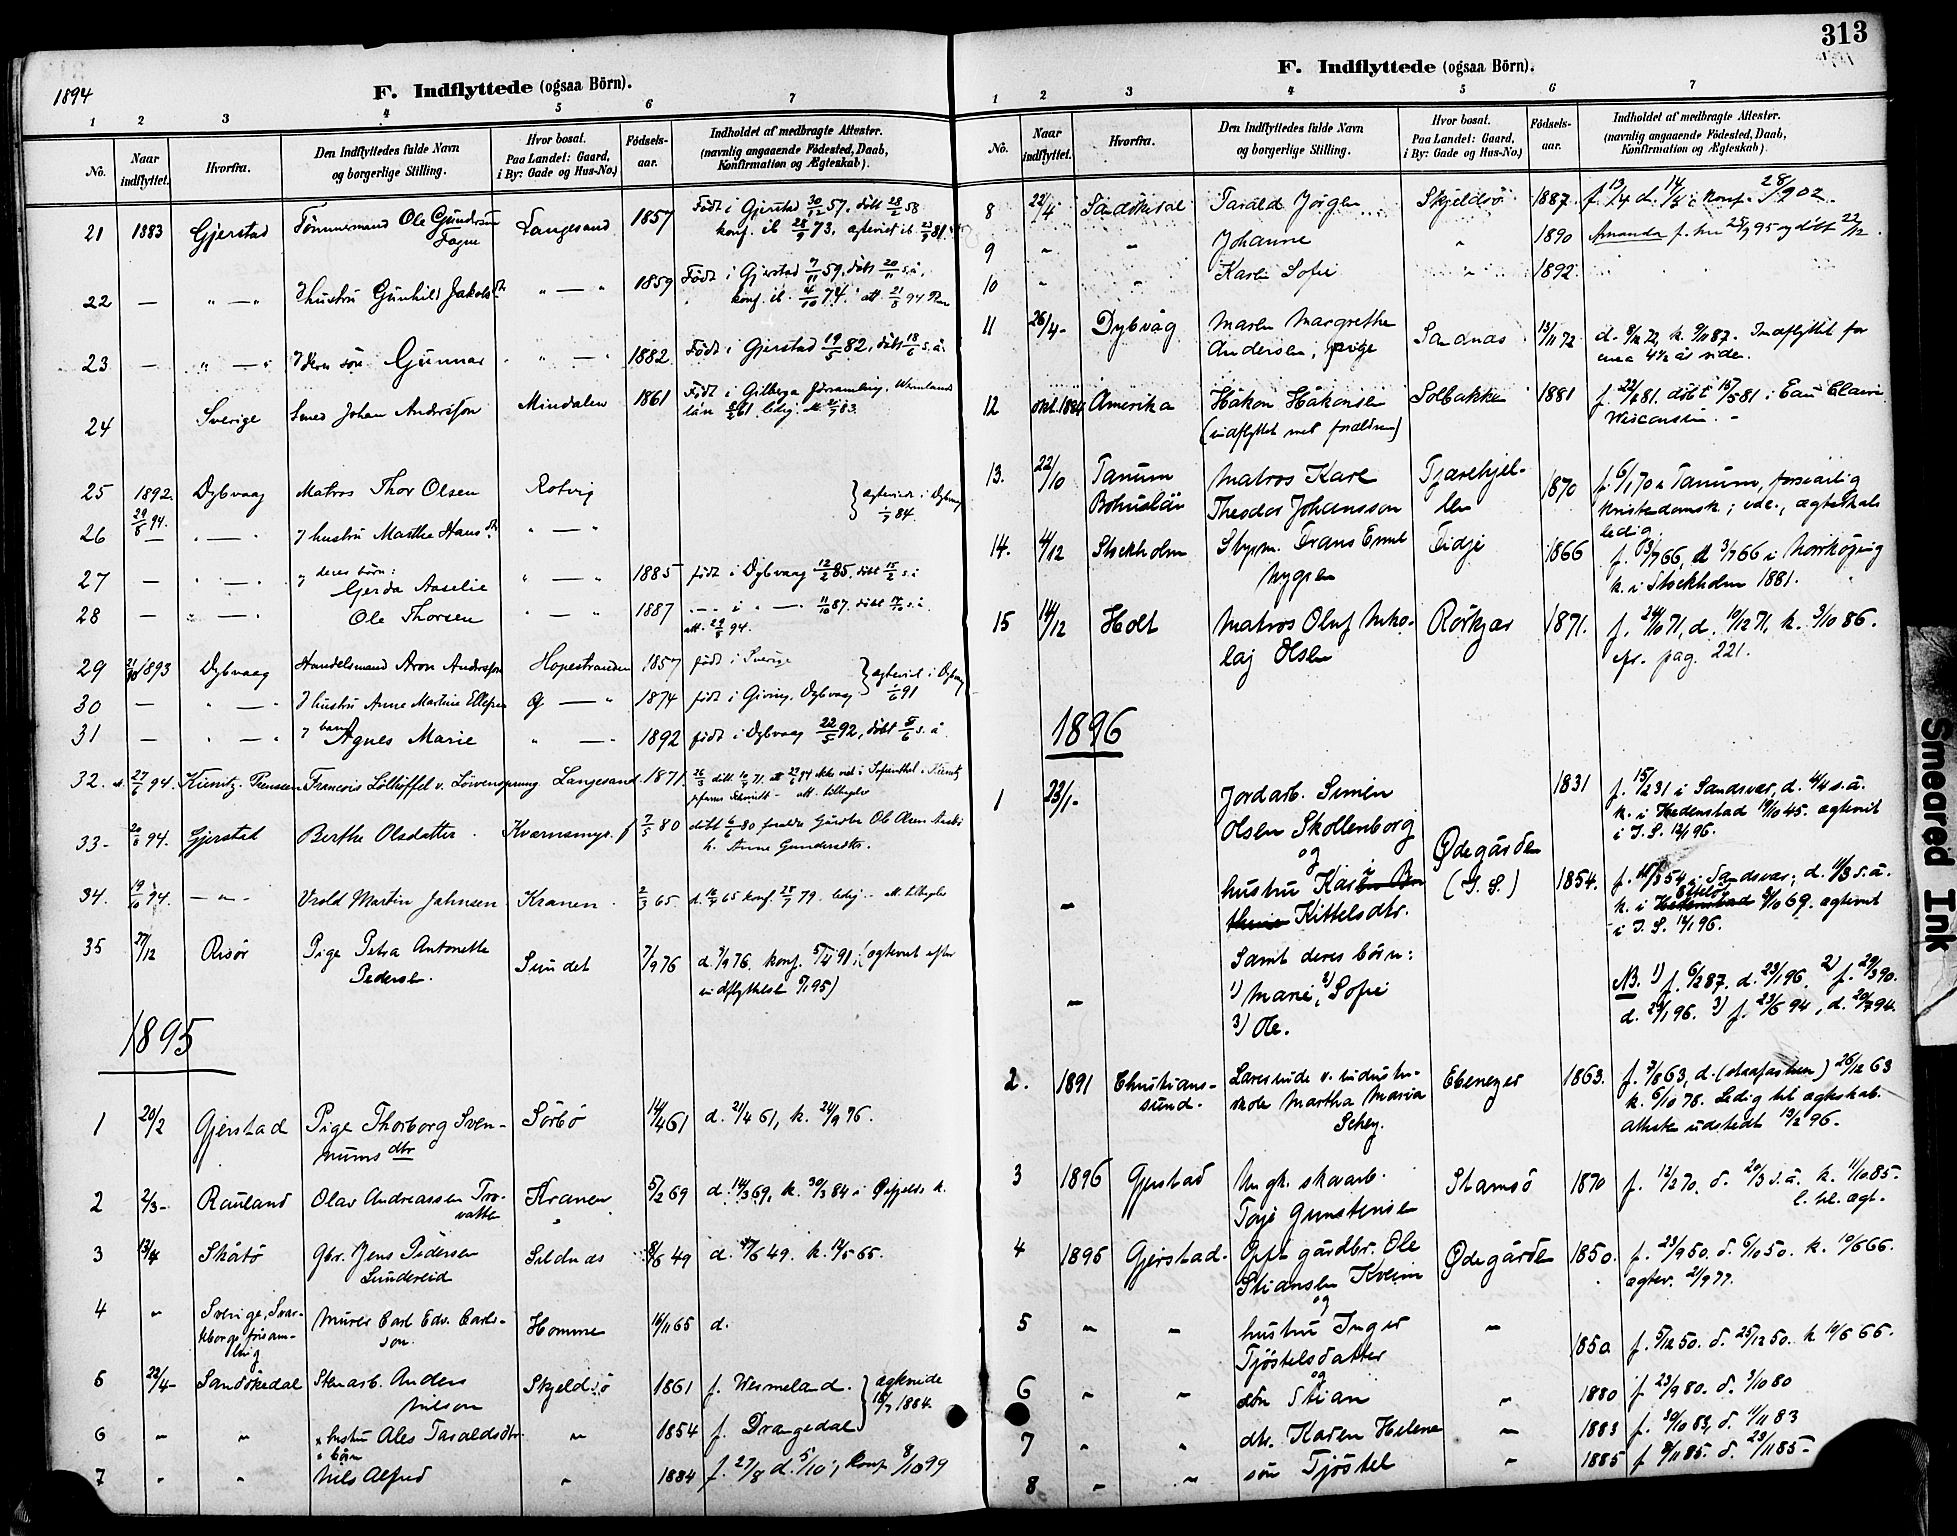 1894
F. Indflyttede (ogsaa Börn).
1 2 3 4 5 6 7
No.
Naar indflyttet.
Hvorfra.
Den Indflyttedes fulde Navn og borgerlige Stilling.
Hvor bosat. Paa Landet: Gaard, i By: Gade og Hus-No.)
Födsels-aar.
Indholdet af medbragte Attester. (navnlig angaaende Födested, Daab, Konfirmation og Ægteskab).
21 1883 Gjerstad Tömmermand Ole Gundersen Fagne Langesand 1857 Födt i Gjerstad 30/12 57, döbt 28/2 58
konf. ib 28/9 73, ægteviet ib.
22 — " — " Hustru Gunhild Jakobsdtr. " — " 1859 Födt i Gjerstad 7/11 59, döbt 20/11 s.å.
konf. ib. 4/10 74. att. 21/8 94
23 — " — " Gunnar " — " 1882 Födt i Gjerstad 19/5 82, döbt 18/6 s.å.
24 Sverige Smed Johan Andersson Mindalen 1861 Födt i Gilberga församling, Wermlands
län 61. ledig.
25 1892 Dybvaag Matros Thor Olsen Rotvig ægteviet i Dybvaag
29/8 94. 84.
26 — " — " Hustru Marthe Hansdtr. " — "
27 — " — " deres börn: Gerda Aaselie " — " 1885 födt i Dybvaag 12/2 85, döbt 15/2 s.å.
28 — " — " Ole Thorsen " — " 1887 — i — 11/10 87. döbt 17/10 s.å.
att. 29/8 94.
29 1893 Dybvaag Handelsmand Aron Andersson Hopestranden 1857 födt i Sverige ægteviet i Dybvaag
30 — " — " Hustru Anne Martine Ellefsen " — " 1874 födt i Giving, Dybvaag 91
31 — " — " barn Agnes Marie " — " 1892 födt i Dybvaag 22/5 92, döbt 5/6 s.å.
32. 27/6 94. Kienitz. Preussen Francois Lölhöffel v. Löwensprung Langesand 1871
33- 20/8 94. Gjerstad Berthe Olsdatter Kværnsmyr. f 7/5 80 döbt 6/6 80 foreldre Gårdbr. Ole Olsen
h. Anne Gundersdtr.
34. 19/10 94. — " — Vrold Martin Jahnsen Kranen 2/3 65. d. 65 konf. 79. ledig
35 27/12 Risör Pige Petra Antonette Pedersen. Sundet 7/9 76 d. 9/9 76. konf. 5/4 91 (ægteviet efter
indflyttelse 95)
1895
1 20/2 Gjerstad Pige Thorborg Sven- Sörbö 14/4 61 d. 21/4 61, k. 24/9 76.
nums dtr
2 2/3- Rauland Olav Andreassen Tro- Kranen 5/2 69 d. 14/3 69, k. 30/3 84 i k.
vatte
3 13/4 Skåtö Gbr. Jens Pedersen Sildnæs 8/6 49 d. 17/6 49. k. 14/5 65.
Lundereid
4 " Sverige, Svar- Murer Carl Edv. Carls- Homme 16/11 65 d.
tborgs försam- son
ling
5 22/4- Sandökedal Stenarb. Anders Skjeldsö 1861 f. Wermeland. ægteviede
Nilson 1884.
6 " " hustru Ales Taraldsdtr. " 1854 f. Drangedal
börn
7 " " Nils Alfred " 1884 f. 27/8 d. 5/10, konf 8/10 99
313
F. Indflyttede (ogsaa Börn).
1 2 3 4 5 6 7
No.
Naar indflyttet.
Hvorfra.
Den Indflyttedes fulde Navn og borgerlige Stilling.
Hvor bosat. Paa Landet: Gaard, i By: Gade og Hus-No.)
Födsels-aar.
Indholdet af medbragte Attester. (navnlig angaaende Födested, Daab, Konfirmation og Ægteskab).
8 22/4 Sandökedal Tarald Jörgen Skjeldsö 1887. f. 13/4 d. konf. 28/9 02.
9 " " Johanne " 1890 Amanda
10 " " Karen Sofie " 1892.
11 26/4- Dybvåg Maren Margrethe Sandnæs 13/11 72 d. 8/12 72, k. 9/11 87. Indflyttet for
Andersen, pige circa 4½ år siden.
12 okt. 1894 Amerika Håkon Håkonsen Solbakken 1881 f. 81. döbt 15/5 81 i Eau Claire
(indflyttet med forældrene) Wisconsin. -
13. 22/10 Tanum Matros Karl Tjærehjel- 1870 f. 6/1 70 i Tanum, forsvarlig
Bohuslän Theodor Johansson len kristendomsk; ægteskab
ledig
14. 4/12 Stockholm Styrm. Frans Emil Fidje 1866 f. 3/7 66, d 3/7 66 i Norrköping
Nygren k. i Stockholm 1881.
15 14/12 Holt Matros Oluf Niko- Rörkjær 1871. f. 24/10 71, d. 10/12 71, k. 3/10 86.
laj Olsen cfr. pag. 221.
1896
1 23/1- Jordarb. Simen 1831 f. 15/2 31 i Sandsvær, d. 4/4 s.å.
Olsen Skollenborg k. i Hedenstad 19/10 45. ægteviet
og Ödegården i I. S. 12/1 96.
— hustru Kari (I. S.) 1854. f. 54 i Sandsvær, d. 11/3 s.å.
Kittelsdtr. k. i Efteløt 10 69. ægteviet
i I. S. 12/1 96.
Samt deres börn:
— 1) Marie, 2) Sofie NB. 1) f. 6/2 87. d. 23/1 96. 2) f. 29/3 90.
3) Ole. d. 23/1 96. 3) f. 23/6 94, d. 20/7 94.
2. 1891 Christians- Lærerinde v. industri- Ebenezer 1863. f. 3/8 63, d. 26/12 63
sund. skole Martha Maria k. 6/10 78. Ledig til ægteskab.
Schey. Attesten udstedt 12/2 96.
3 1896 Gjerstad Ungk. skovarb. Stamsö 1870 f. 12/2 70, d. 20/3 s.å. k. 11/10 85.
Torje Gunstensen l. til ægt.
4 1896 Gjerstad. Opf. gårdbr. Ole Ödegården 1850. f. 23/9 50. d. 6/10 50. k. 10/6 66.
Stiansen Kveim ægtev. 21/9 77.
og
5 " " hustru Inger " 1850 f. 5/12 50. d. 25/12 50. k 10/6 66.
Tjöstelsdatter
og
6 " " sön Stian " 1880 f 23/9 80. d. 3/10 80
7 " " dtr. Karen Helene " 1883 f. 30/10 83, d. 11/11 83
8 " " sön Tjöstel " 1885 f 8/11 85. d. 23/11 85-
Smeared Ink